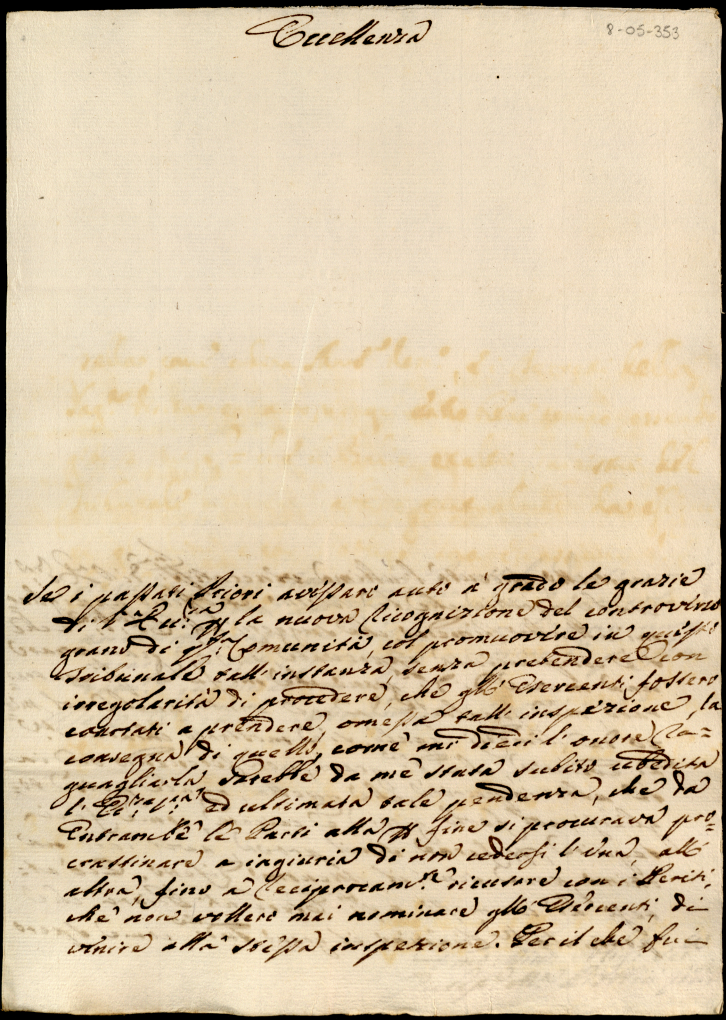 8-05-353
Eccellenza
Se i passati Priori avessero auto à grado le grazie
di V.ra Ecc.za p la nuova Ricognizione del controverso
grano di q.sta Comunità, col promuovere in questo
Tribunale tall'instanza, senza pretendere con
irregolarità di procedere, che gl'Esercenti fossero
coartati a prendere, omessa tall'inspezione, la
consegna di quello, come mi diedi l'onore rag-
guagliarla sarebbe da me stata subito ubedita
l'Ecc.za V.ra ed ultimata tale pendenza, che da
Entrambe le Parti alla p fine si procurava pro-
crastinare a ingiuria di non cedersi l'una, all'
altra, fino a reciprocam.te ricusare con i Periti,
che non vollero mai nominare gl'Esercenti, di
venire alla stessa inspezione. Per il che fui